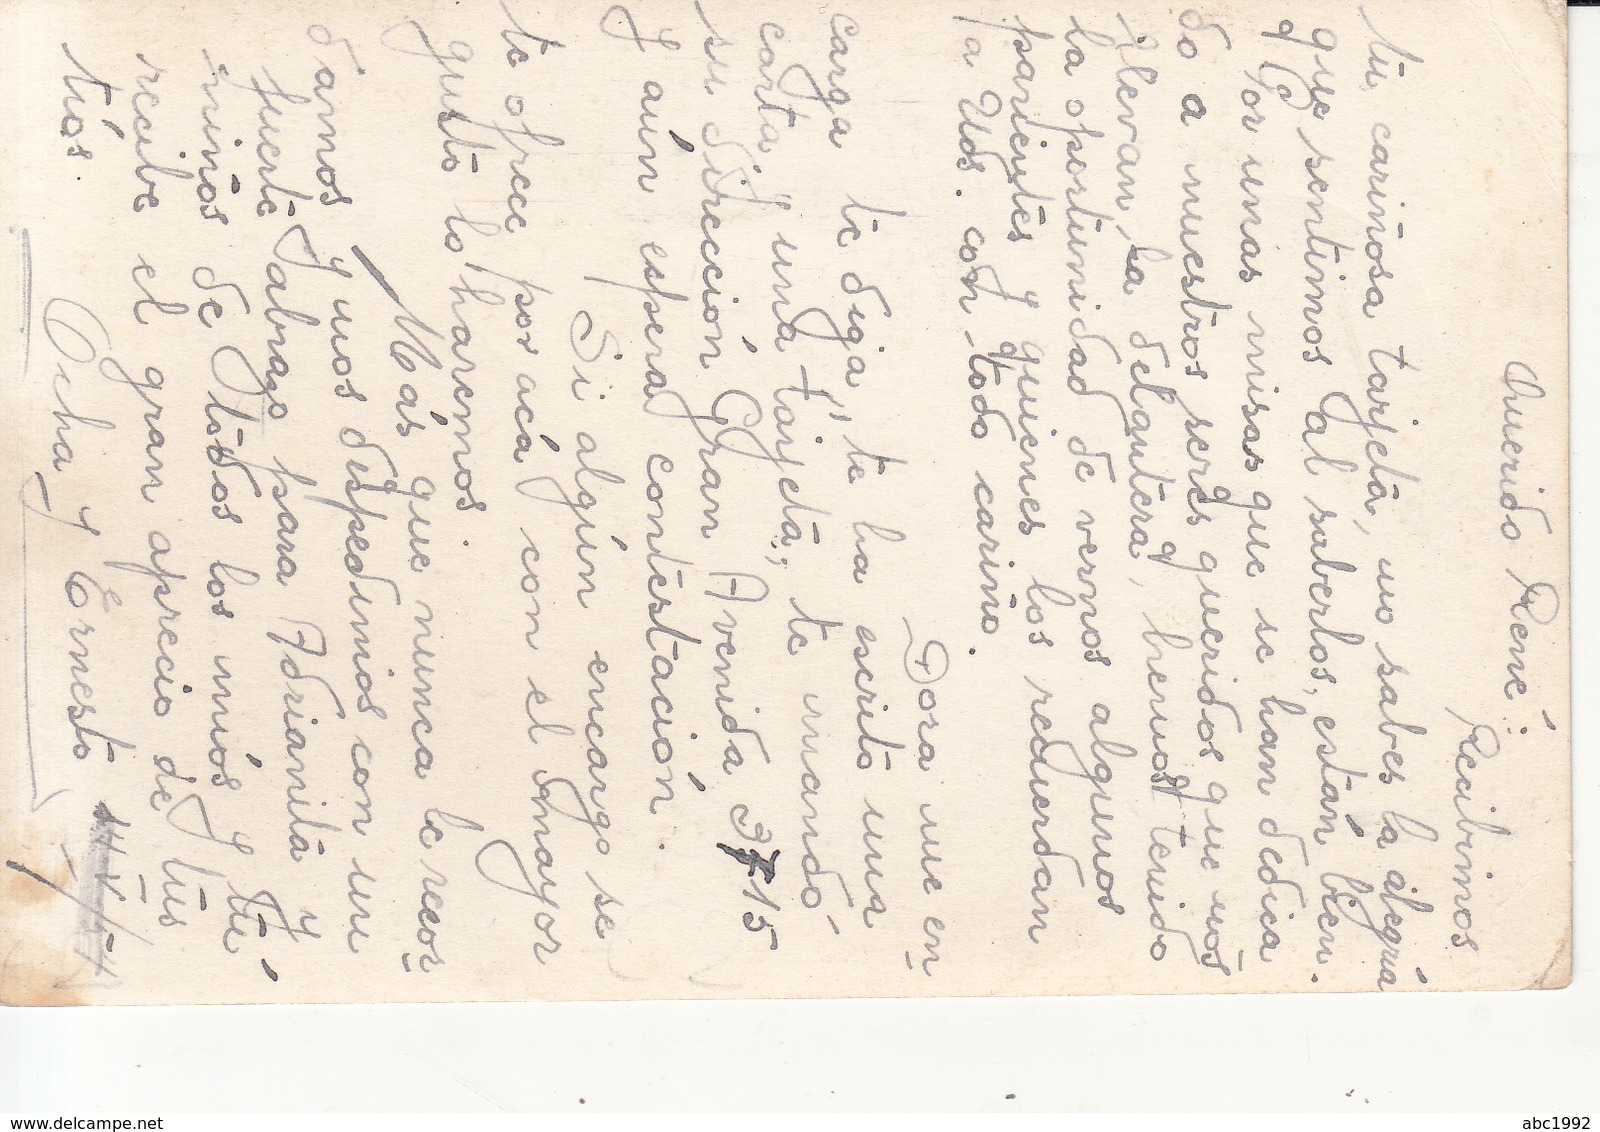 Querido René:
Recibimos
tu cariñosa tarjeta, no sabes la alegría
que sentimos al saberlos, están bien.
Por unas misas que se han dedica
do a nuestros seres queridos que nos
llevan la delantera, hemos tenido
la oportunidad de vernos algunos
parientes y quienes los recuerdan
a Uds. con todo cariño.
Dora me en
carga te diga, te ha escrito una
carta, y una tarjeta, te mandó
su dirección Gran Avenida 3715
y aún espera contestación.
Si algún encargo se
te ofrece por acá con el mayor
gusto lo haremos.
Más que nunca le recor
damos y nos despedimos con un
fuerte abrazo para Adrianita y
niños de todos los míos y tú
recibe el gran aprecio de tus
tíos.
y Ernesto
abc1992